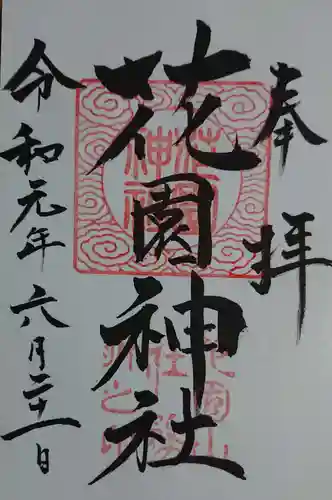 奉拝
花園神社
令和元年六月二十一日